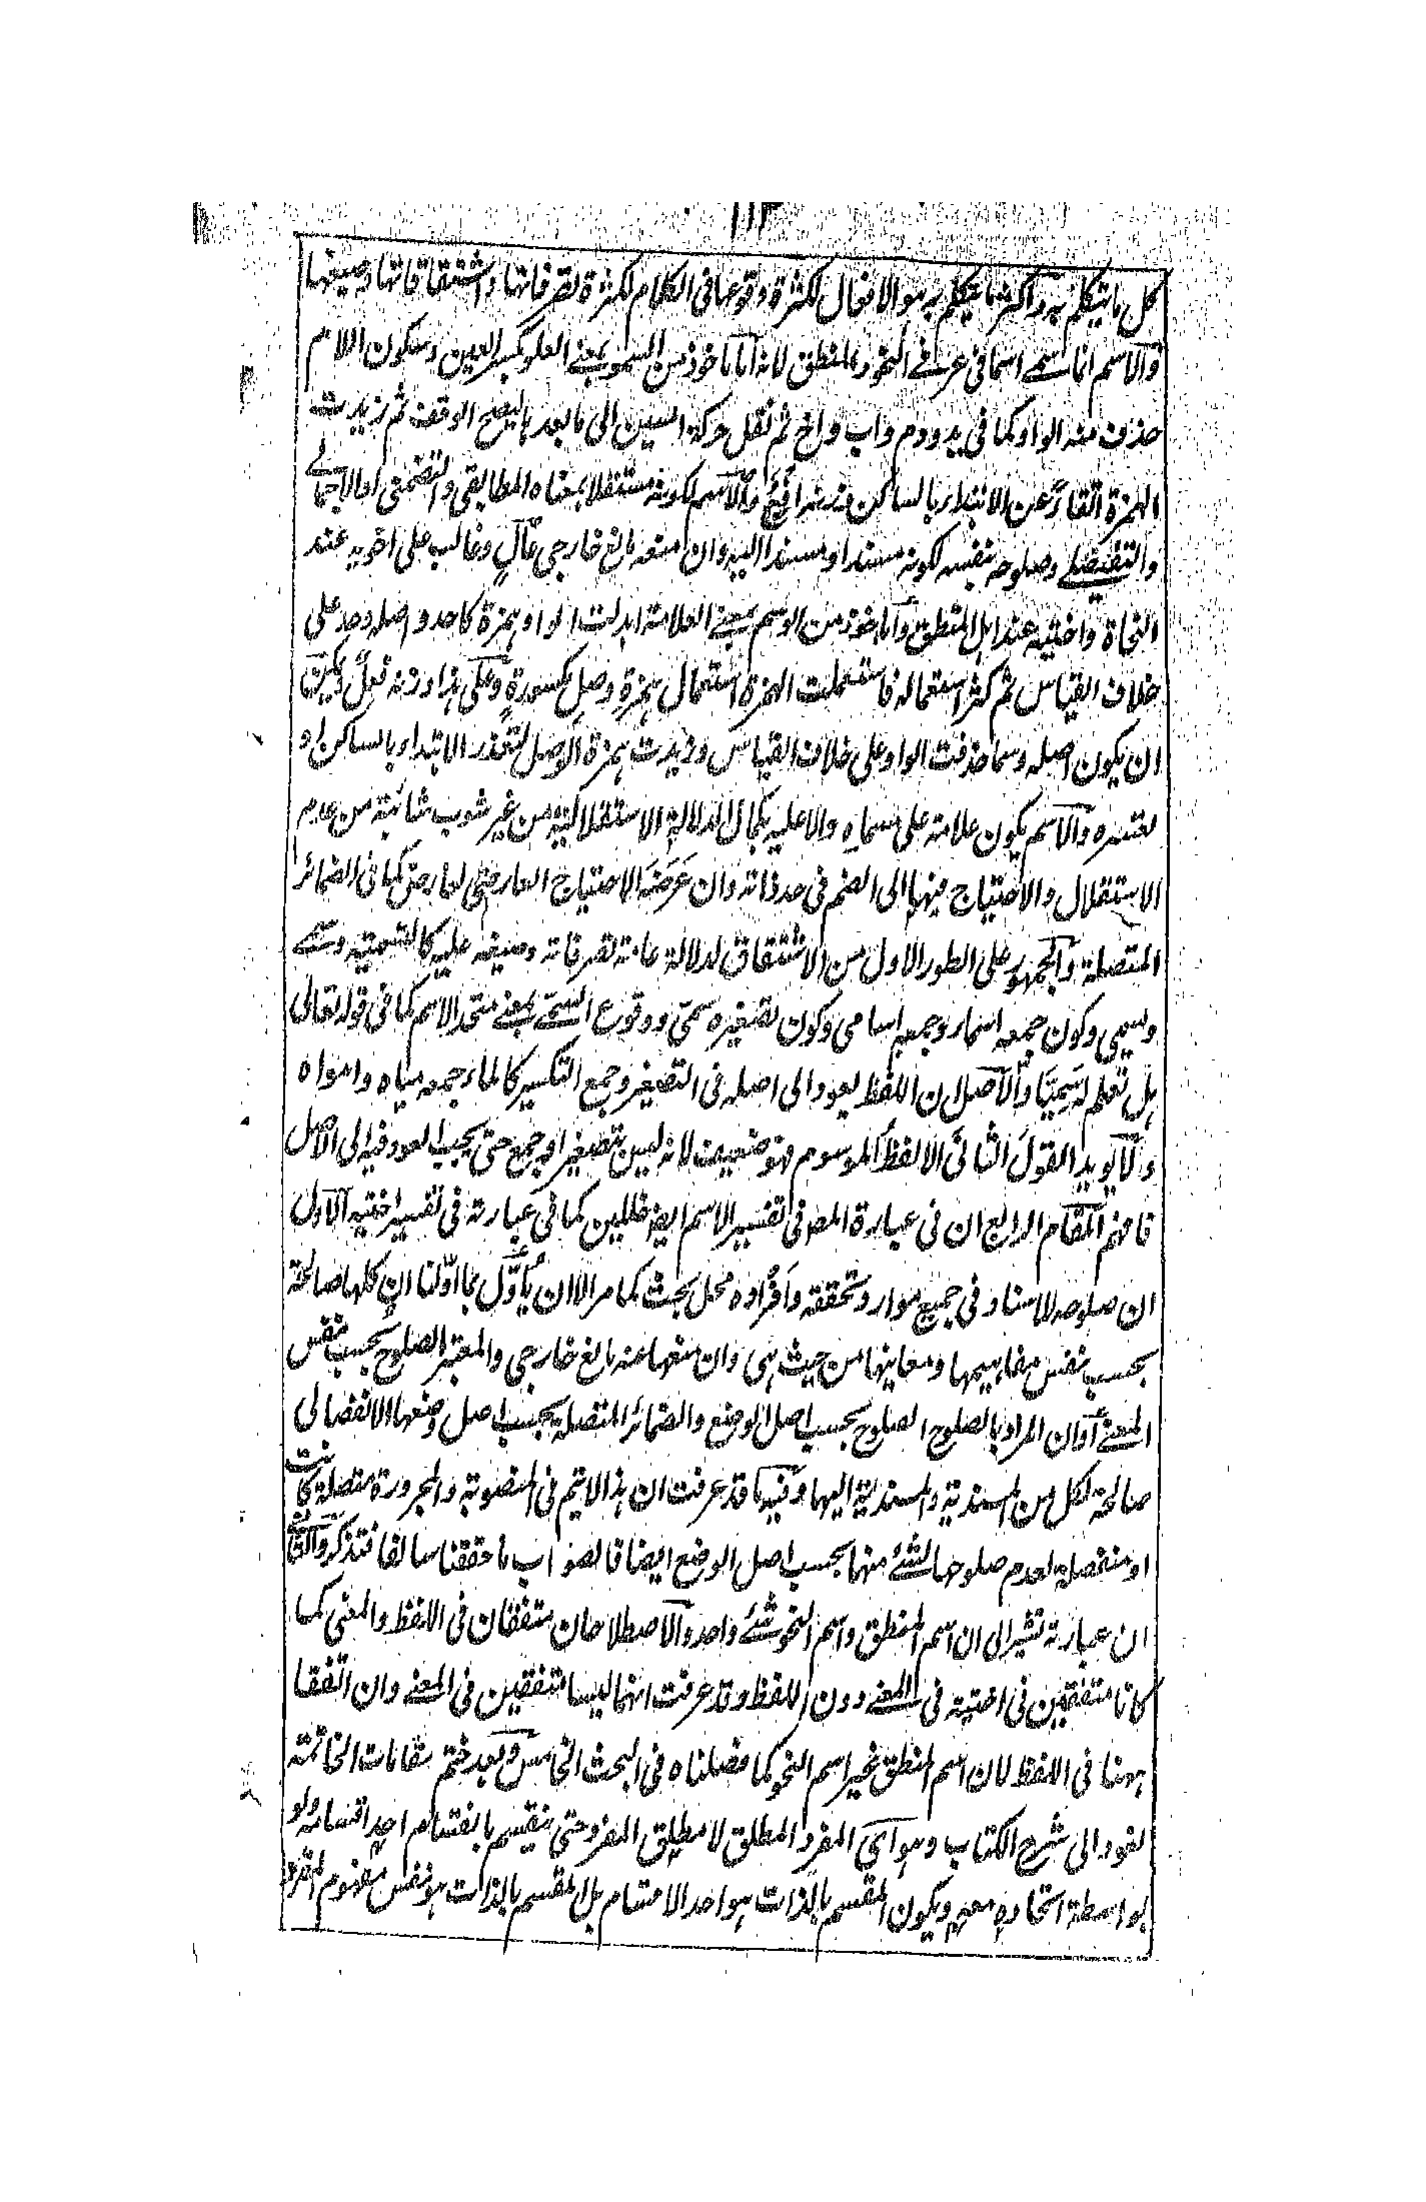 كل ما يتكلم به واكثر ما يتكلم به هو الافعال لكثرة وقوعها فى الكلام لكثرة تصرفاتها واشتقاقاتها وصيغها
والاسم انما سمى اسما فى عرفى النحو والمنطق لانه اما ماخوذ من السمو بمعنى العلو بكسر العين وسكون اللام
حذف منه الواو كما فى يد ودم واب واخ ثم نقل حركة السين الى ما بعدها ليصح الوقف ثم زيدت
الهمزة اتقاءً عن الابتداء بالساكن وزنه افع والاسم لكونه مستقلا بمعناه المطابقى والتضمنى او الاجمالى
والتفصيلى وصلوحه بنفسه لكونه مسندا ومسندا اليه وان منعه مانع خارجى عالٍ وغالب على اخويه عند
النحاة واختيه عند اهل المنطق واما ماخوذ من الوسم بمعنى العلامة ابدلت الواو همزة كاحد واصله وحد على
خلاف القياس ثم كثر استعماله فاستعملت الهمزة استعمال همزةِ وصلٍ مكسورةٍ وعلى هذا وزنه فعل ويمكن
ان يكون اصله وسما حذفت الواو على خلاف القياس وزيدت همزة الوصل لتعذر الابتداء بالساكن او
تعسره والاسم يكون علامة على مسماه والا عليه بكمال الدلالة الاستقلالية من غير شوب شائبة من عدم
الاستقلال والاحتياج فيها الى الضم فى حد ذاته وان عَرَضَه الاحتياج العارضى لعارض كما فى الضمائر
المتصلة والجمهور على الطور الاول من الاشتقاق لدلالة عامة تصرفاته وصيغه عليه كالتسمية وسمى
ويسمى وكون جمعه اسماء وجمعه اسامى وكون تصغيره سمىّ ووقوع السمىّ بمعنى متحد الاسم كما فى قوله تعالى
هل تعلم له سَمِيّا والاصل ان اللفظ يعود الى اصله فى التصغير وجمع التكسير كالماء جمعه مياه وامواه
ولا يويد القولَ الثانىَ الا لفظُ الموسوم فهو ضعيف لانه ليس بتصغير او جمع حتى يجب العود فيه الى الاصل
فافهم المقام الرابع ان فى عبارة المص فى تفسير الاسم ايضا خللين كما فى عبارته فى تفسير اختيه الاول
ان صلوحه للاسناد فى جميع موارد تحققه وافراده محل بحث كما مر الا ان يُأوَّل بما اوّلنا ان كلها صالحة
بحسب نفس مفاهيمها ومعانيها من حيث هى وان منعها عنه مانع خارجى والمعتبر الصلوح بحسب نفس
المعنى او ان المراد بالصلوح الصلوح بحسب اصل الوضع والضمائر المتصلة بحسب اصل وضعها الانفصالى
صالحة لكل من المسندية والمسندية اليها وفيه ما قد عرفت ان هذا لا يتم فى المنصوبة والمجرورة متصلة كانت
او منفصلة لعدم صلوحها لشئ منهما بحسب اصل الوضع ايضا فالصواب ما حققنا سالفا فتذكر والثانى
ان عبارته تشير الى ان اسم المنطق واسم النحو شئ واحد والاصطلاحان متفقان فى اللفظ والمعنى كما
كانا متفقين فى اختيه فى المعنى دون اللفظ وقد عرفت انهما ليسا متفقين فى المعنى وان اتفقا
ههنا فى اللفظ لان اسم المنطق غير اسم النحو كما فصلناه فى البحث الخامس وبعد ختم مقامات الخاتمة
نعود الى شرح الكتاب وهو اى المفرد المطلق لا مطلق المفرد حتى ينقسم بانقسام احد اقسامه ولو
بواسطة اتحاده معه ويكون المقسم بالذات هو احد الاقسام بل المقسم بالذات هو نفس مفهوم المفرد